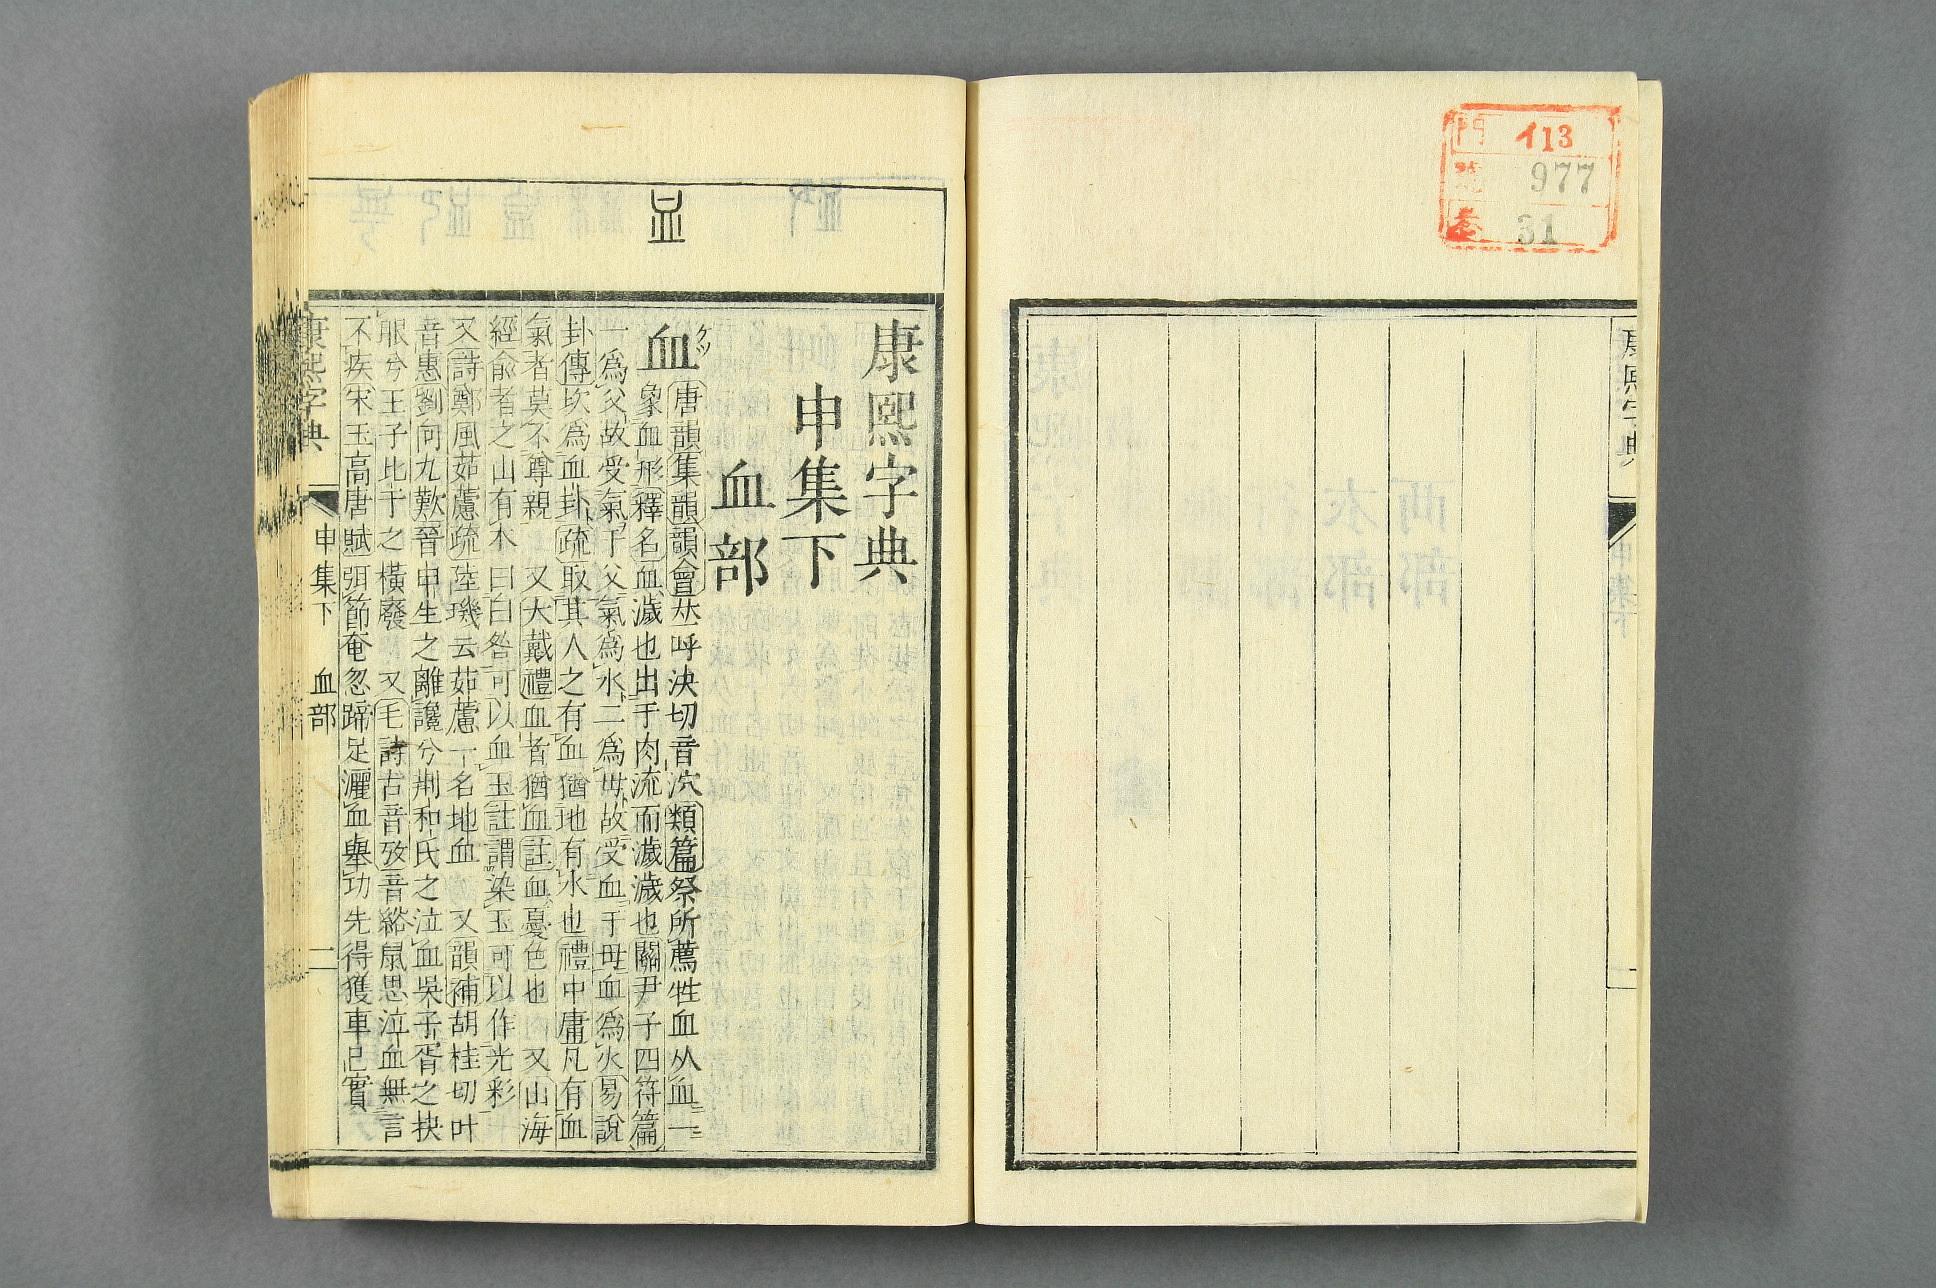 門 イ13
號 977
卷 31
康熙字典
康熙字典
申集下
血部
血 ケツ
唐韻集韻韻會𠀤呼決切音泬類篇祭所薦牲血从血一
象血形釋名血濊也出于肉流而濊濊也關尹子四符篇
一爲父故受氣于父氣爲水二爲母故受血于母血爲火易說
卦傳坎爲血卦疏取其人之有血猶地有水也禮中庸凡有血
氣者莫不尊親 又大戴禮血者猶血註血憂色也 又山海
經兪者之山有木曰白咎可以血玉註謂染玉可以作光彩
又詩鄭風茹藘疏陸璣云茹藘一名地血 又韻補胡桂切叶
音惠劉向九歎晉申生之離讒兮荆和氏之泣血吳子胥之抉
眼兮王子比干之橫廢 又毛詩古音攷音綌鼠思泣血無言
不疾宋玉高唐賦弭節奄忽蹄足灑血舉功先得獲車已實
康熙字典 申集下 血部 二